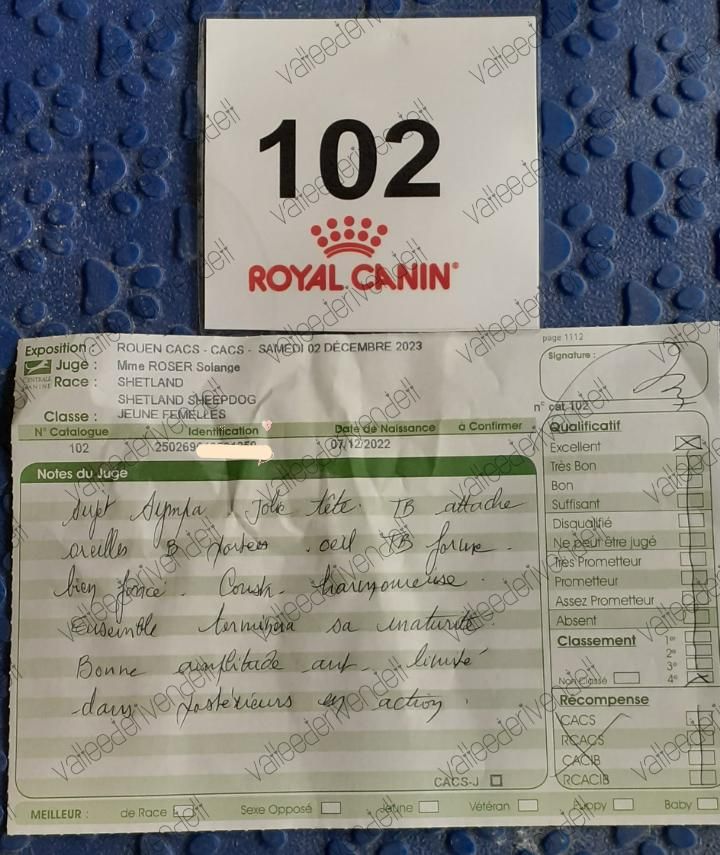 102
ROYAL CANIN
page 1112
Exposition : ROUEN CACS - CACS - SAMEDI 02 DÉCEMBRE 2023
Signature :
CENTRALE CANINE
Juge : Mme ROSER Solange
Race : SHETLAND
SHETLAND SHEEPDOG
Classe : JEUNE FEMELLES
n° cat 102
N° Catalogue Identification Date de Naissance à Confirmer
102 250269 07/12/2022
Notes du Juge
Sujet Sympa. Jolie tête. TB attache
oreilles B portées. oeil TB forme.
bien foncé. Const. harmonieuse.
Ensemble terminera sa maturité.
Bonne amplitude ant. limité
dans postérieurs en action.
CACS-J
Qualificatif
Excellent
Très Bon
Bon
Suffisant
Disqualifié
Ne peut être jugé
Très Prometteur
Prometteur
Assez Prometteur
Absent
Classement 1er
2e
3e
Non Classé 4e
Récompense
CACS
RCACS
CACIB
RCACIB
MEILLEUR : de Race Sexe Opposé Jeune Vétéran Puppy Baby
valleederivendell